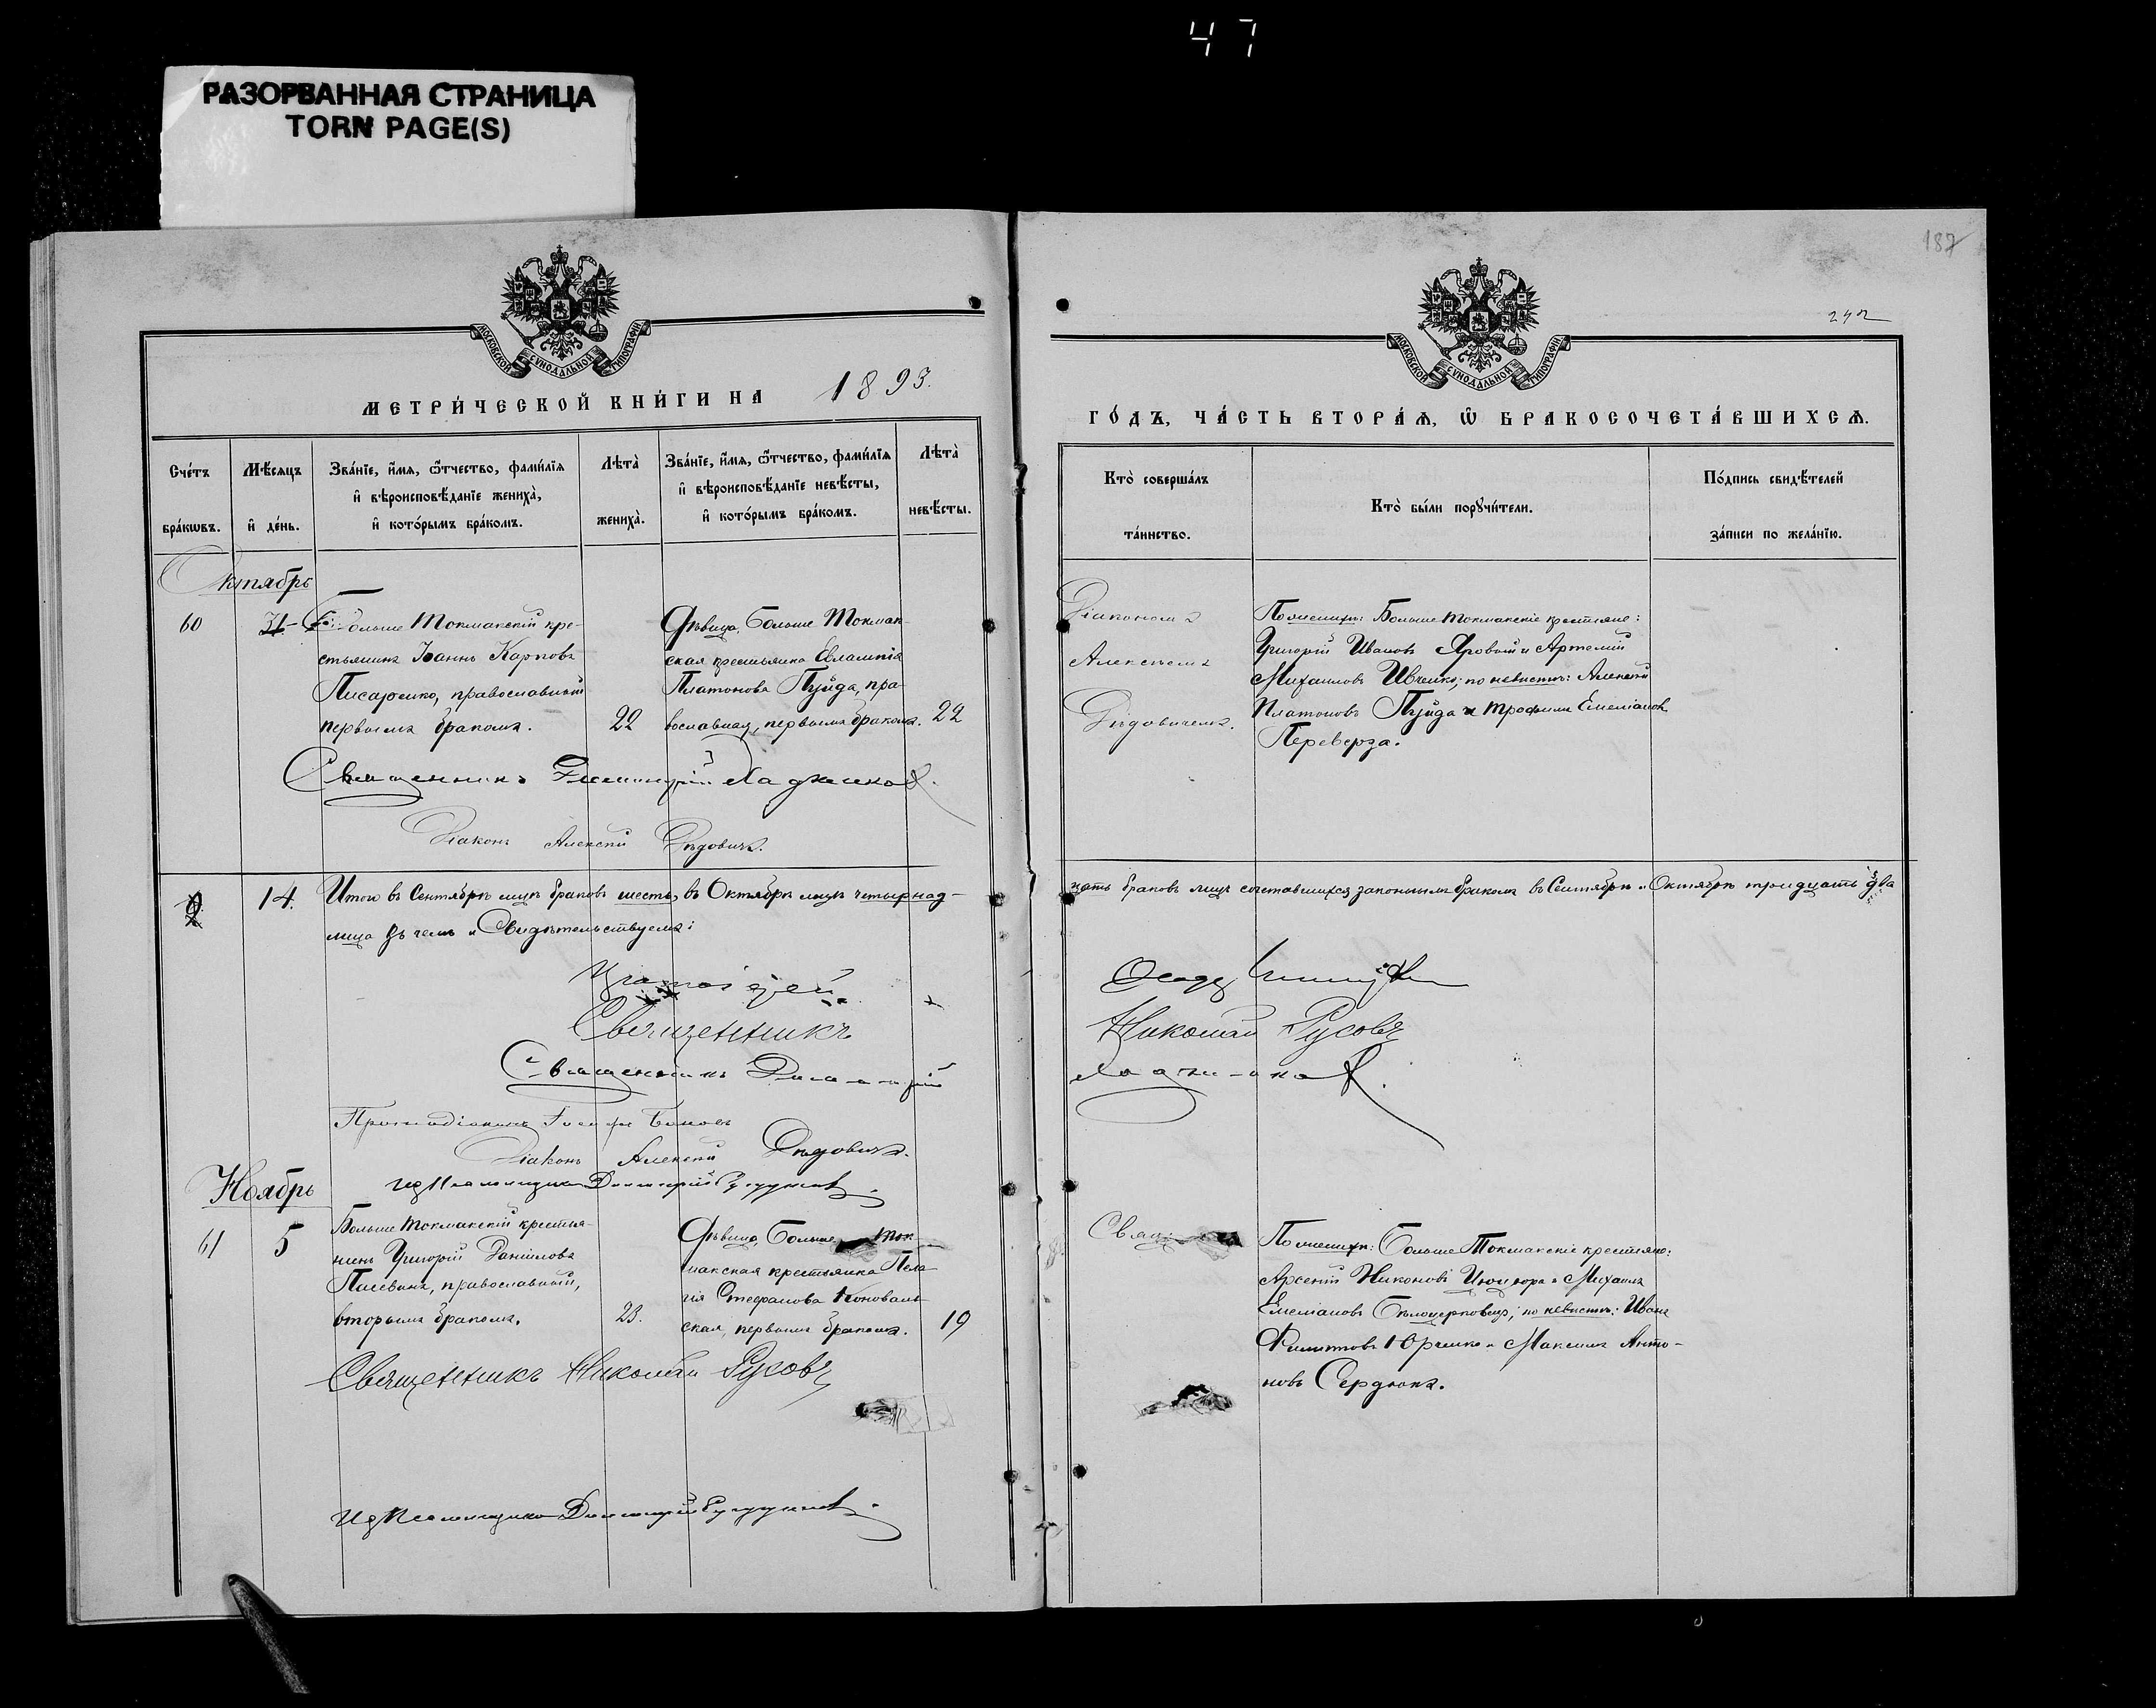 47
РАЗОРВАННАЯ СТРАНИЦА
TORN PAGE(S)
187
МОСКОВСКОЙ СУНОДАЛЬНОЙ ТИПОГРАФІИ
МОСКОВСКОЙ СУНОДАЛЬНОЙ ТИПОГРАФІИ
МЕТРИ́ЧЕСКОЙ КНИ́ГИ НА 1893.
ГО́ДЪ, ЧА́СТЬ ВТОРА́Ѧ, Ѿ БРАКОСОЧЕТА́ВШИХСѦ.
Сче́тъ бра́кѡвъ.
Мѣ́сяцъ и҆ де́нь.
Зва́нїе, и҆́мя, ѻ҆́тчество, фами́лїя и҆ вѣроисповѣ́данїе жениха̀, и҆ кото́рымъ бра́комъ.
Лѣта̀ жениха̀.
Зва́нїе, и҆́мя, ѻ҆́тчество, фами́лїя и҆ вѣроисповѣ́данїе невѣ́сты, и҆ кото́рымъ бра́комъ.
Лѣта̀ невѣ́сты.
Кто̀ соверша́лъ та́инство.
Кто̀ бы́ли порꙋчи́тели.
По́дпись свидѣ́телей за́писи по жела́нїю.
Октябрь
60
31
Больше Токмакскій кре-
стьянинъ Іоаннъ Карповъ
Писаренко, православный
первымъ бракомъ.
22
Дѣвица, Больше Токмак-
ская крестьянка Евлампія
Платонова Пуйда, пра-
вославная, первымъ бракомъ.
22
Діакономъ
Алексѣемъ
Дѣдовичемъ.
По женихѣ: Больше Токмакскіе крестьяне:
Григорій Ивановъ Яровый и Артемій
Михаиловъ Ивченко; по невѣстѣ: Алексѣй
Платоновъ Пуйда и Трофимъ Емеліановъ
Переверза.
Священникъ Димитрій
Діаконъ Алексѣй Дѣдовичъ.
14.
Итого въ Сентябрѣ мцѣ браковъ шесть, въ Октябрѣ мцѣ четырнад-
цать браковъ лицъ сочетавшихся законнымъ бракомъ въ Сентябрѣ и Октябрѣ тридцать два
лица въ чемъ и Свидѣтельствуемъ:
Протоіерей
Священникъ Николай Русовъ
Священникъ Димитрій
Протодіаконъ
Діаконъ Алексѣй Дѣдовичъ.
Димитрій
Ноябрь
61
5
Больше Токмакскій крестья-
нинъ Григорій Даніиловъ
Пилевинъ, православный,
вторымъ бракомъ,
23.
Дѣвица, Больше Ток-
макская крестьянка Пела-
гія Стефанова Коноваль-
ская, первымъ бракомъ.
19
Свящ.
По женихѣ: Больше Токмакскіе крестьяне:
Арсеній Никоновъ и Михаилъ
Емеліановъ Бѣлоцерковецъ; по невѣстѣ: Иванъ
Филипповъ Юрченко и Максимъ Анто-
новъ Сердюкъ.
Священникъ Николай Русовъ
Димитрій